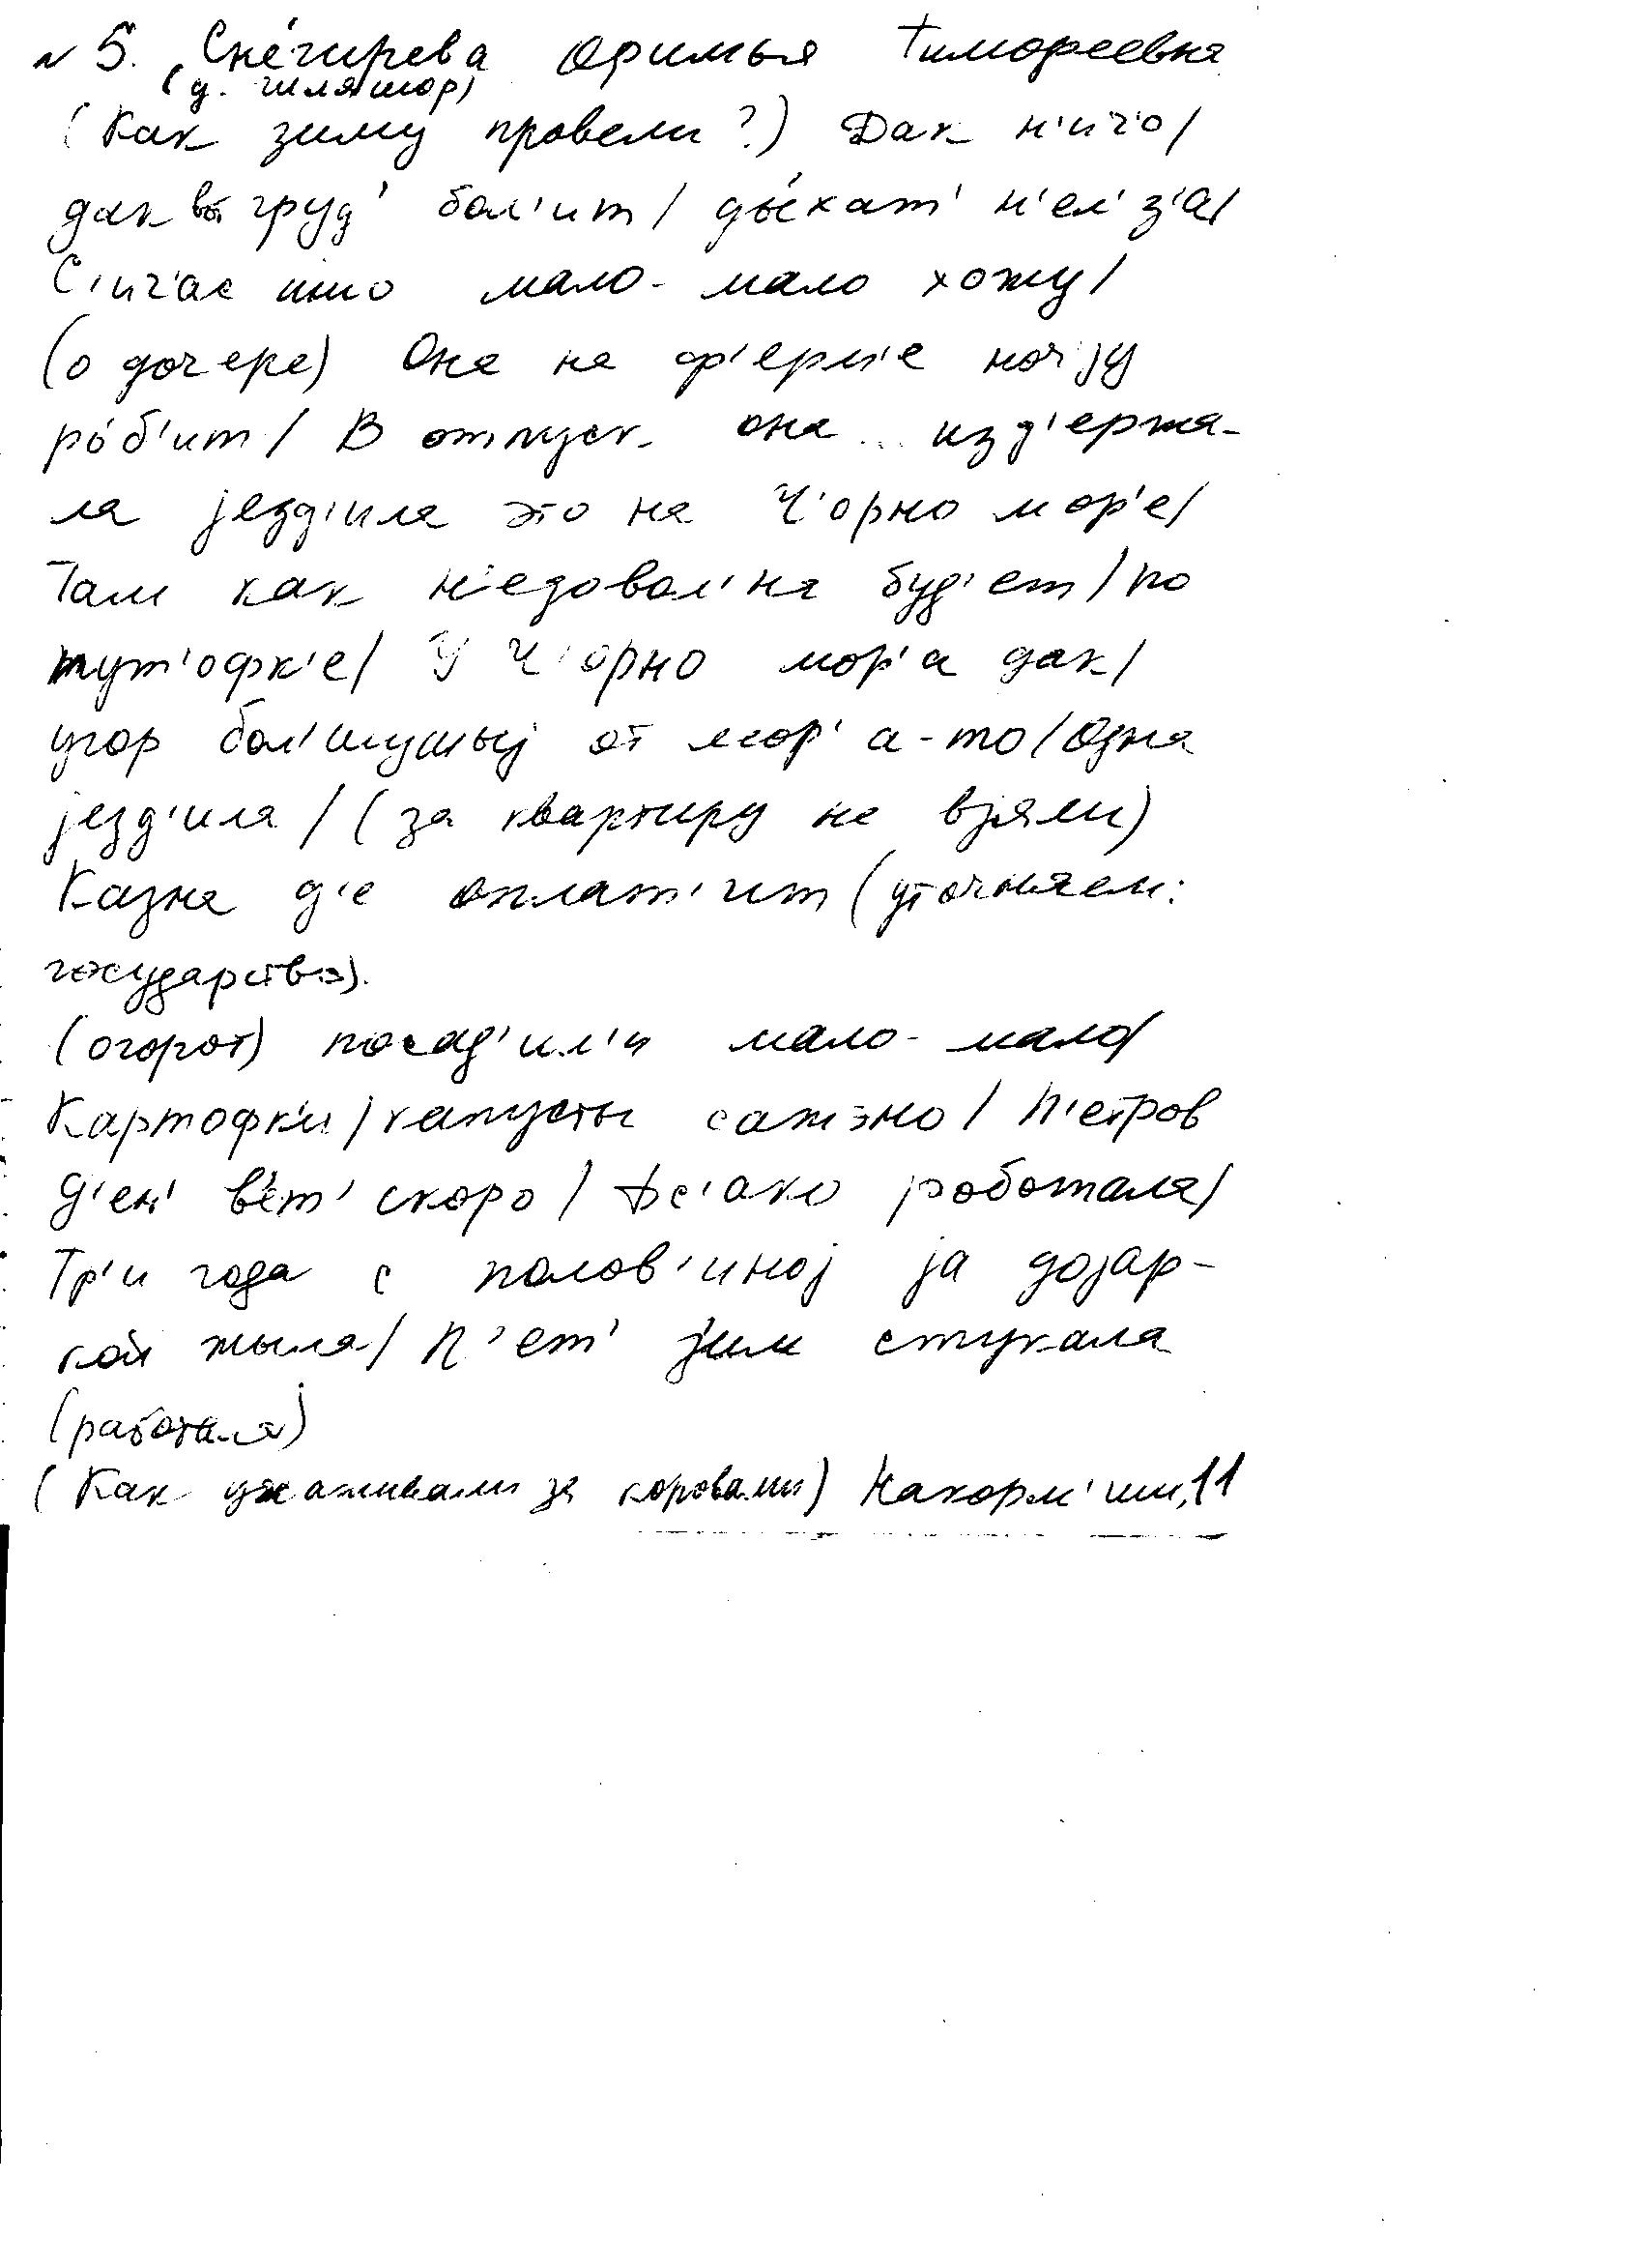 N 5. Сне́гирева Офимья Тимофеевна
(д. Гиляшор)
(Как зиму провели?) Дак н'ич'о/
дак вы груд' бол'ит/ ды́хат' н'ел'з'а/
С'ич'ас што мало-мало хожу/
(о дочере) Она на ф'ерм'е ноч'jу
ро́б'ит/ В отпуск она .. изд'ержа-
ла jезд'ила это на Ч'орно мор'е/
Там как н'едовол'на буд'ет/ по
тут'офк'е/ У Ч'орно мор'а дак/
угор бол'шушыj от мор'а-то/ Одна
jезд'ила/ (за квартиру не взяли)
Казна д'е оплат'ит (уточняем:
государство).
(огорот) посад'ил'и мало-мало/
Картофк'и/ капусты сажэно/ П'етров
д'ен' в'ет' скоро/ Вс'ако роботала/
Тр'и года с полов'иноj jа доjар-
кой жыла/ П'ет' зим стукала
(работала)
(Как ухаживали за коровами) Накорм'иш, 11